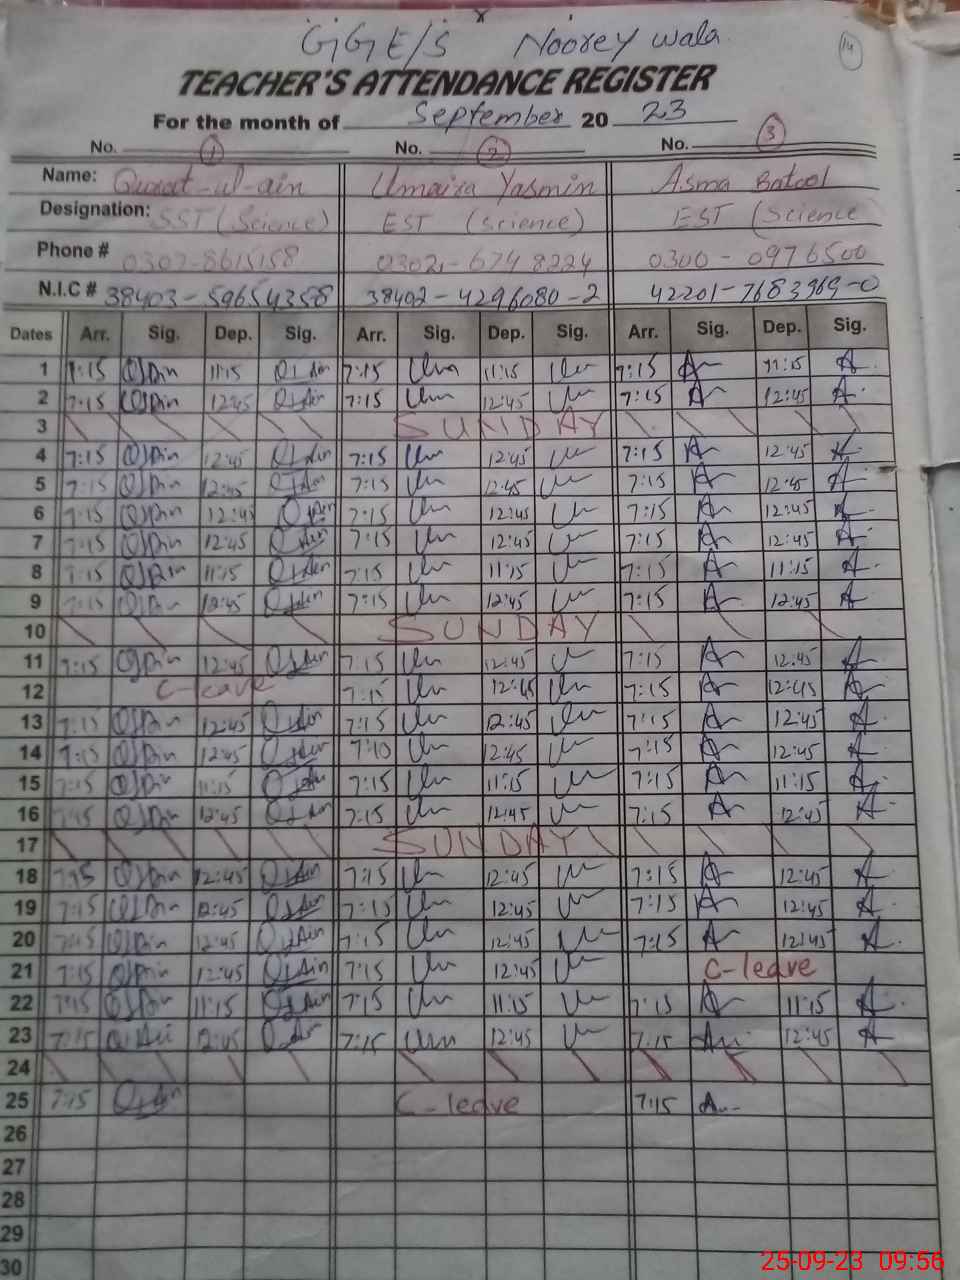 GGE/S Noorey wala
14
TEACHER'S ATTENDANCE REGISTER
For the month of September 20 23
No. 1 No. 2 No. 3
Name: Qurat-ul-ain Umaira Yasmin Asma Batool
Designation: SST (Science) EST (Science) EST (Science
Phone # 0307-8615158 0302-6748224 0300-0976500
N.I.C # 38403-59654358 38402-4296080-2 42201-7683969-0
Dates Arr. Sig. Dep. Sig. Arr. Sig. Dep. Sig. Arr. Sig. Dep. Sig.
1 7:15 11:15 7:15 11:15 7:15 11:15
2 7:15 12:45 7:15 12:45 7:15 12:45
3 SUNDAY
4 7:15 12:45 7:15 12:45 7:15 12:45
5 7:15 12:45 7:15 12:45 7:15 12:45
6 7:15 12:45 7:15 12:45 7:15 12:45
7 7:15 12:45 7:15 12:45 7:15 12:45
8 7:15 11:15 7:15 11:15 7:15 11:15
9 7:15 12:45 7:15 12:45 7:15 12:45
10 SUNDAY
11 7:15 12:45 7:15 12:45 7:15 12:45
12 C-leave 7:15 12:45 7:15 12:45
13 7:15 12:45 7:15 12:45 7:15 12:45
14 7:15 12:45 7:10 12:45 7:15 12:45
15 7:15 11:15 7:15 11:15 7:15 11:15
16 7:15 12:45 7:15 12:45 7:15 12:45
17 SUNDAY
18 7:15 12:45 7:15 12:45 7:15 12:45
19 7:15 12:45 7:15 12:45 7:15 12:45
20 7:15 12:45 7:15 12:45 7:15 12:45
21 7:15 12:45 7:15 12:45 C-leave
22 7:15 11:15 7:15 11:15 7:15 11:15
23 7:15 12:45 7:15 12:45 7:15 12:45
24
25 7:15 C-leave 7:15
26
27
28
29
30
25-09-23 09:56